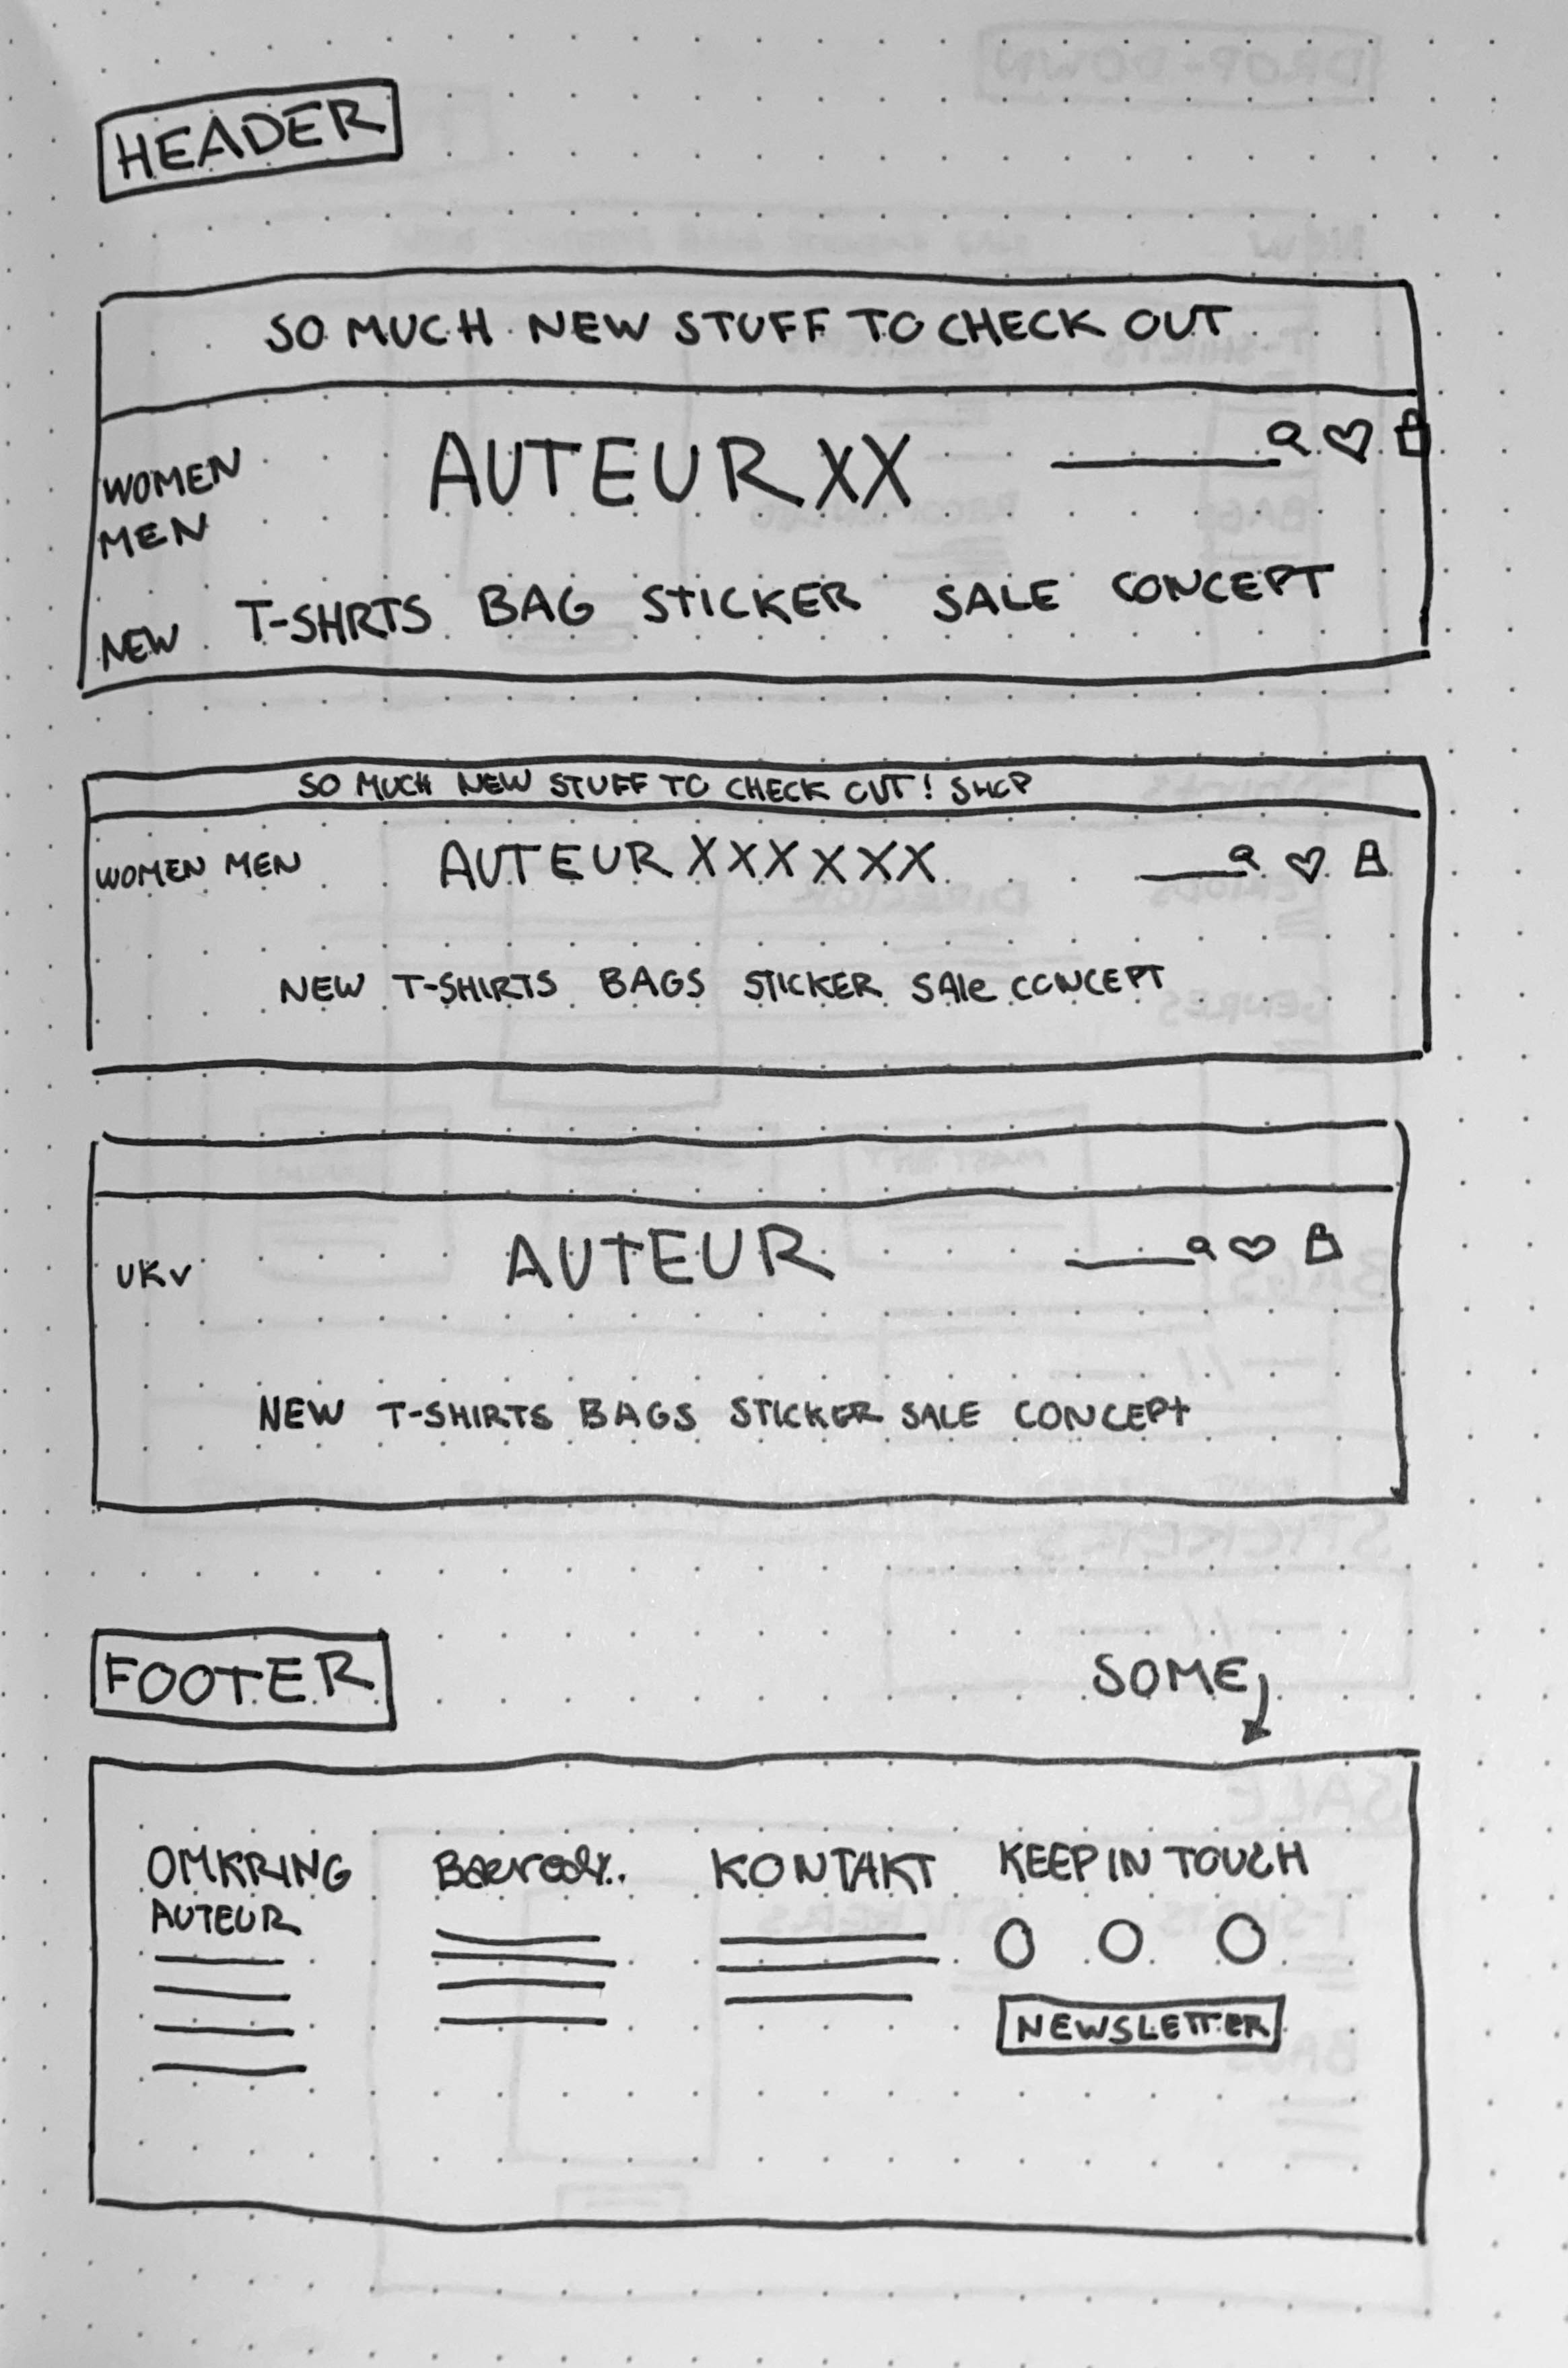 HEADER
SO MUCH NEW STUFF TO CHECK OUT
WOMEN
MEN
AUTEUR XX
NEW T-SHRTS BAG STICKER SALE CONCEPT
SO MUCH NEW STUFF TO CHECK OUT! SHOP
WOMEN MEN AUTEUR XXXXXX
NEW T-SHIRTS BAGS STICKER SAle CONCEPT
UK AUTEUR
NEW T-SHIRTS BAGS STICKER SALE CONCEPT
FOOTER
SOME
OMKRING
AUTEUR
KONTAKT
KEEP IN TOUCH
NEWSLETTER